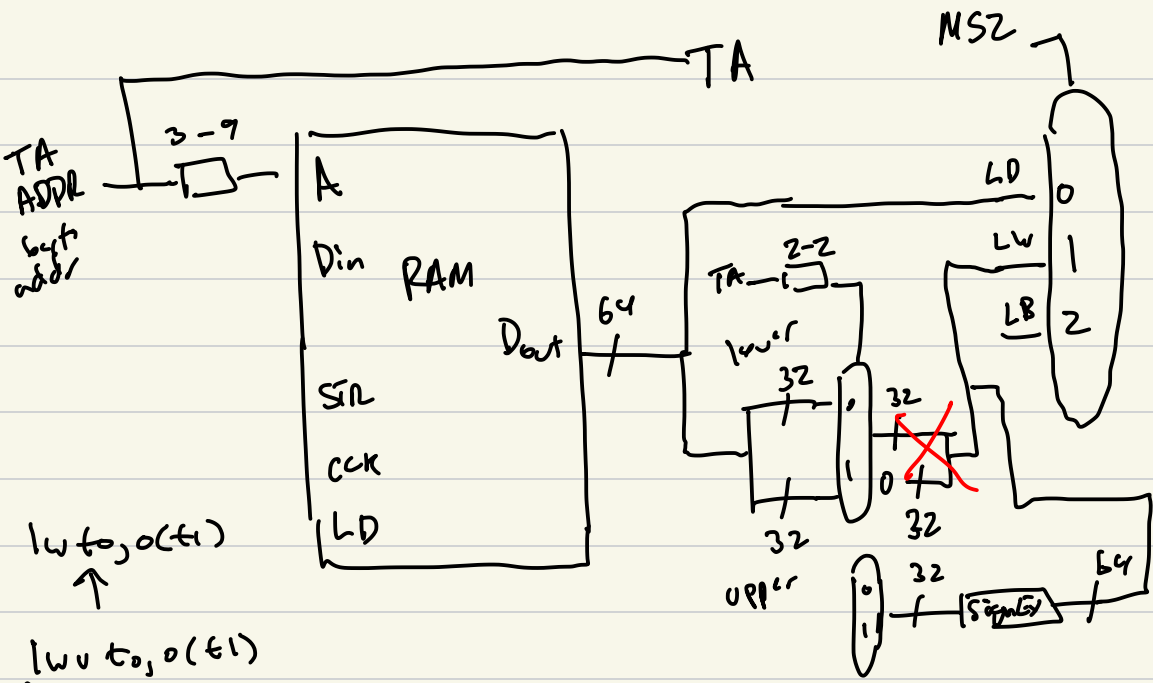 MSZ
TA
3-9
TA
ADDR
byte
addr
A
Din
RAM
Dout
STR
CCK
LD
64
LD
0
LW
1
LB
2
TA
2-2
lower
32
0
1
32
32
0
32
upper
0
1
32
SignEx
64
lw t0, 0(t1)
lwu t0, 0(t1)